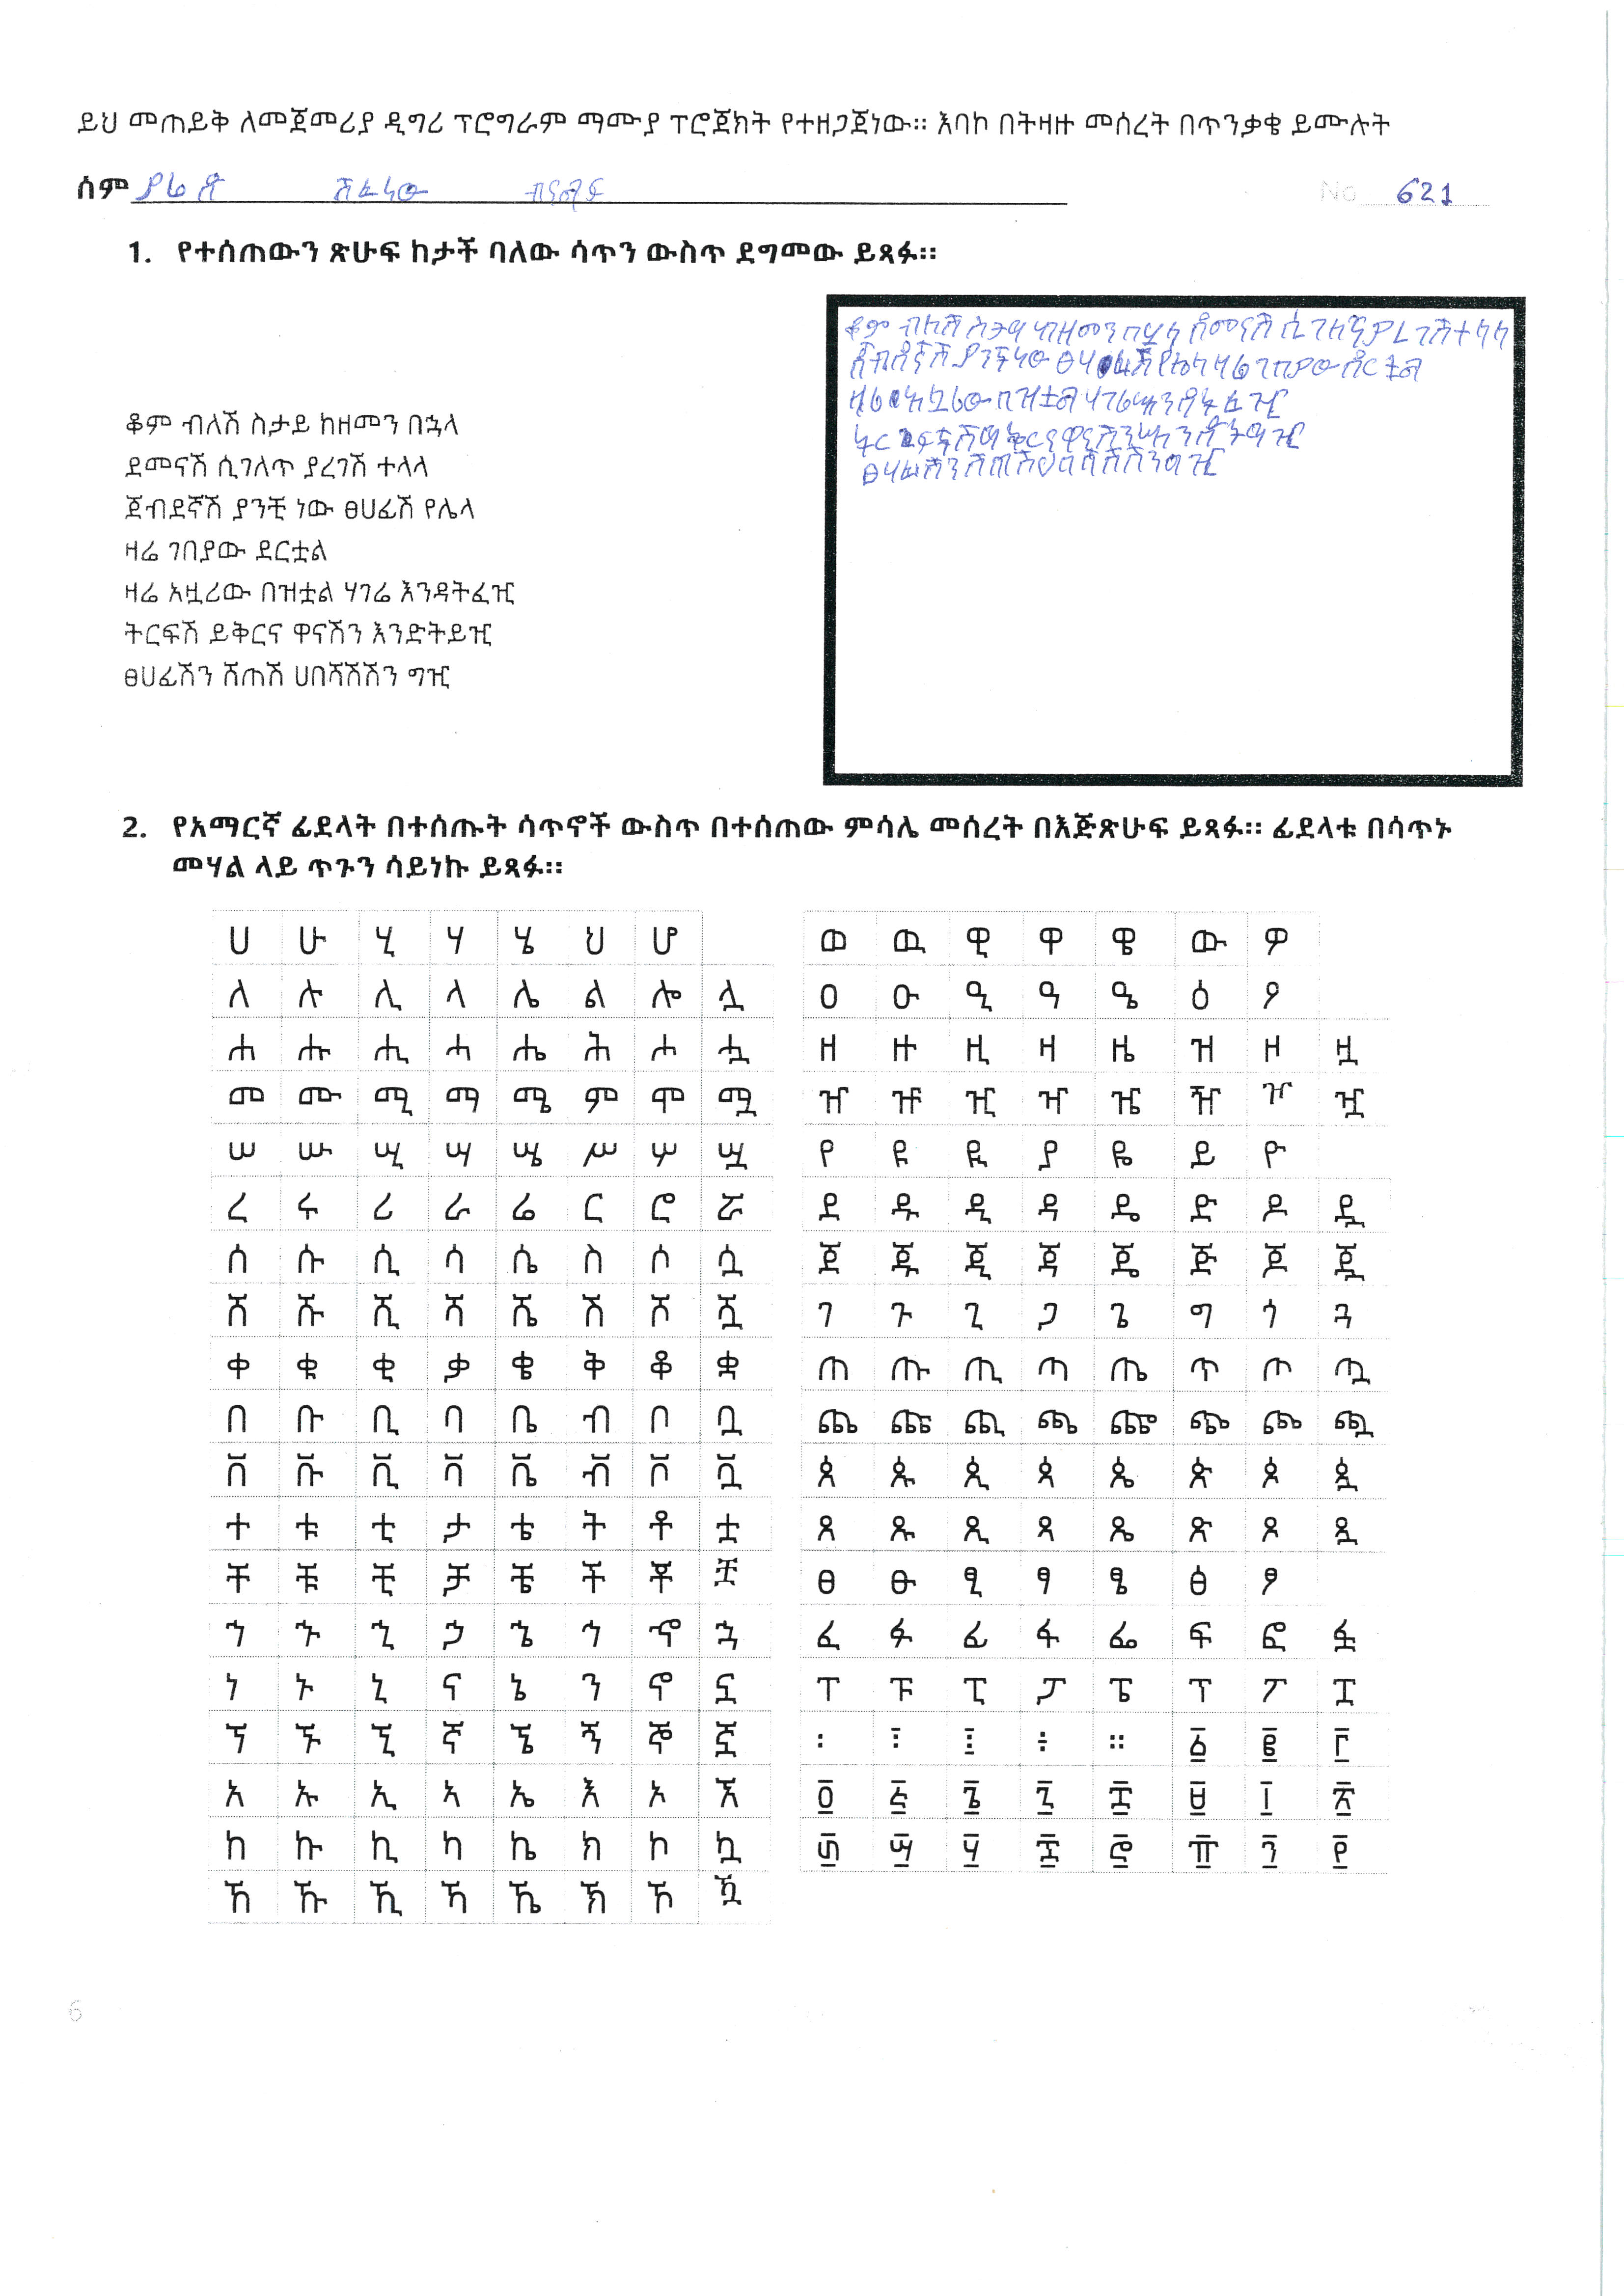 ይህ መጠይቅ ለመጀመሪያ ዲግሪ ፕሮግራም ማሙያ ፕሮጀክት የተዘጋጀነው። እባኮ በትዛዙ መሰረት በጥንቃቄ ይሙሉት
ሰም ያሬድ No 621
1. የተሰጠውን ጽሁፍ ከታች ባለው ሳጥን ውስጥ ደግመው ይጻፉ።
ቆም ብለሽ ስታይ ከዘመን በኋላ
ደመናሽ ሲገለጥ ያረገሽ ተላላ
ጀብደኛሽ ያንቺ ነው ፀሀፊሽ የሌላ
ዛሬ ገበያው ደርቷል
ዛሬ አዟሪው በዝቷል ሃገሬ እንዳትፈዢ
ትርፍሽ ይቅርና ዋናሽን እንድትይዢ
ፀሀፊሽን ሽጠሽ ሀበሻሽሽን ግዢ
ቆም ብለሽ ስታዓ ካዘመን በኋላ ደመናሽ ሲገለጥ ያረገሽ ተላላ
ጀብደኛሽ ያንቺ ነው ፀሃፊሽ የሌላ ዛሬ ገበያው ደርቷል
ዛሬ አዟሪው በዝቷል ሃገሬ
2. የአማርኛ ፊደላት በተሰጡት ሳጥኖች ውስጥ በተሰጠው ምሳሌ መሰረት በእጅጽሁፍ ይጻፉ። ፊደላቱ በሳጥኑ
መሃል ላይ ጥጉን ሳይነኩ ይጻፉ።
ሀ ሁ ሂ ሃ ሄ ህ ሆ
ለ ሉ ሊ ላ ሌ ል ሎ ሏ
ሐ ሑ ሒ ሓ ሔ ሕ ሖ ሗ
መ ሙ ሚ ማ ሜ ም ሞ ሟ
ሠ ሡ ሢ ሣ ሤ ሥ ሦ ሧ
ረ ሩ ሪ ራ ሬ ር ሮ ሯ
ሰ ሱ ሲ ሳ ሴ ስ ሶ ሷ
ሸ ሹ ሺ ሻ ሼ ሽ ሾ ሿ
ቀ ቁ ቂ ቃ ቄ ቅ ቆ ቋ
በ ቡ ቢ ባ ቤ ብ ቦ ቧ
ቨ ቩ ቪ ቫ ቬ ቭ ቮ ቯ
ተ ቱ ቲ ታ ቴ ት ቶ ቷ
ቸ ቹ ቺ ቻ ቼ ች ቾ ቿ
ኀ ኁ ኂ ኃ ኄ ኅ ኆ ኋ
ነ ኑ ኒ ና ኔ ን ኖ ኗ
ኘ ኙ ኚ ኛ ኜ ኝ ኞ ኟ
አ ኡ ኢ ኣ ኤ እ ኦ ኧ
ከ ኩ ኪ ካ ኬ ክ ኮ ኳ
ኸ ኹ ኺ ኻ ኼ ኽ ኾ ዃ
ወ ዉ ዊ ዋ ዌ ው ዎ
ዐ ዑ ዒ ዓ ዔ ዕ ዖ
ዘ ዙ ዚ ዛ ዜ ዝ ዞ ዟ
ዠ ዡ ዢ ዣ ዤ ዥ ዦ ዧ
የ ዩ ዪ ያ ዬ ይ ዮ
ደ ዱ ዲ ዳ ዴ ድ ዶ ዷ
ጀ ጁ ጂ ጃ ጄ ጅ ጆ ጇ
ገ ጉ ጊ ጋ ጌ ግ ጎ ጓ
ጠ ጡ ጢ ጣ ጤ ጥ ጦ ጧ
ጨ ጩ ጪ ጫ ጬ ጭ ጮ ጯ
ጰ ጱ ጲ ጳ ጴ ጵ ጶ ጷ
ጸ ጹ ጺ ጻ ጼ ጽ ጾ ጿ
ፀ ፁ ፂ ፃ ፄ ፅ ፆ
ፈ ፉ ፊ ፋ ፌ ፍ ፎ ፏ
ፐ ፑ ፒ ፓ ፔ ፕ ፖ ፗ
፡ ፧ ፤ ። ፩ ፪ ፫
፬ ፭ ፮ ፯ ፰ ፱ ፲ ፳
፴ ፵ ፶ ፷ ፸ ፹ ፺ ፻
6